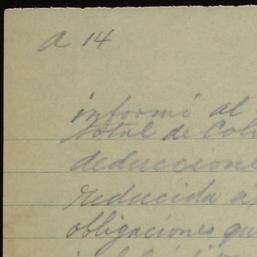 a 14
informó al
total de Col
deduccione
reducida a
obligaciones qu